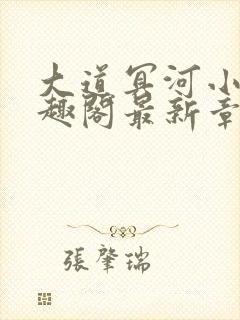 大道冥河小
趣阁最新章
張肇瑞